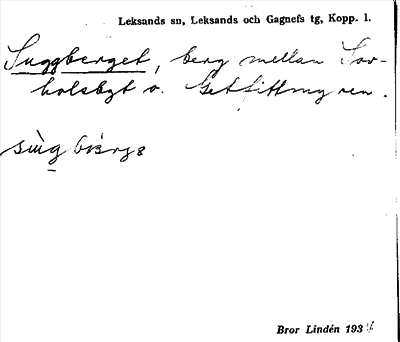 Leksands sn, Leksands och Gagnefs tg, Kopp. l.
Suggberget, berg mellan Sor-
bolsbyt o. Getfittmyren.
Bror Lindén 1934